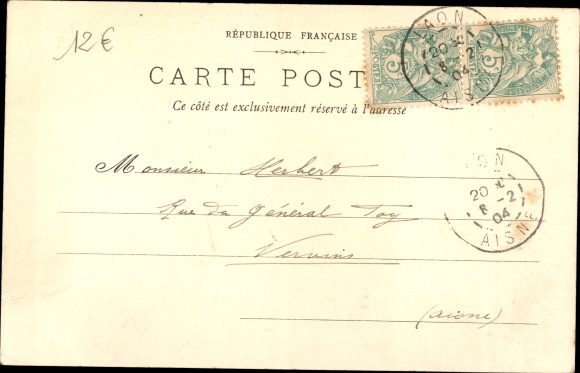 12€
RÉPUBLIQUE FRANÇAISE
CARTE POST
Ce côté est exclusivement réservé à l'adresse
LAON
20
8 -21
04
AISNE
5
5
Monsieur Herbert
Rue du Général Foy
Vervins
(aisne)
ON
20
8 -21
04
AISN